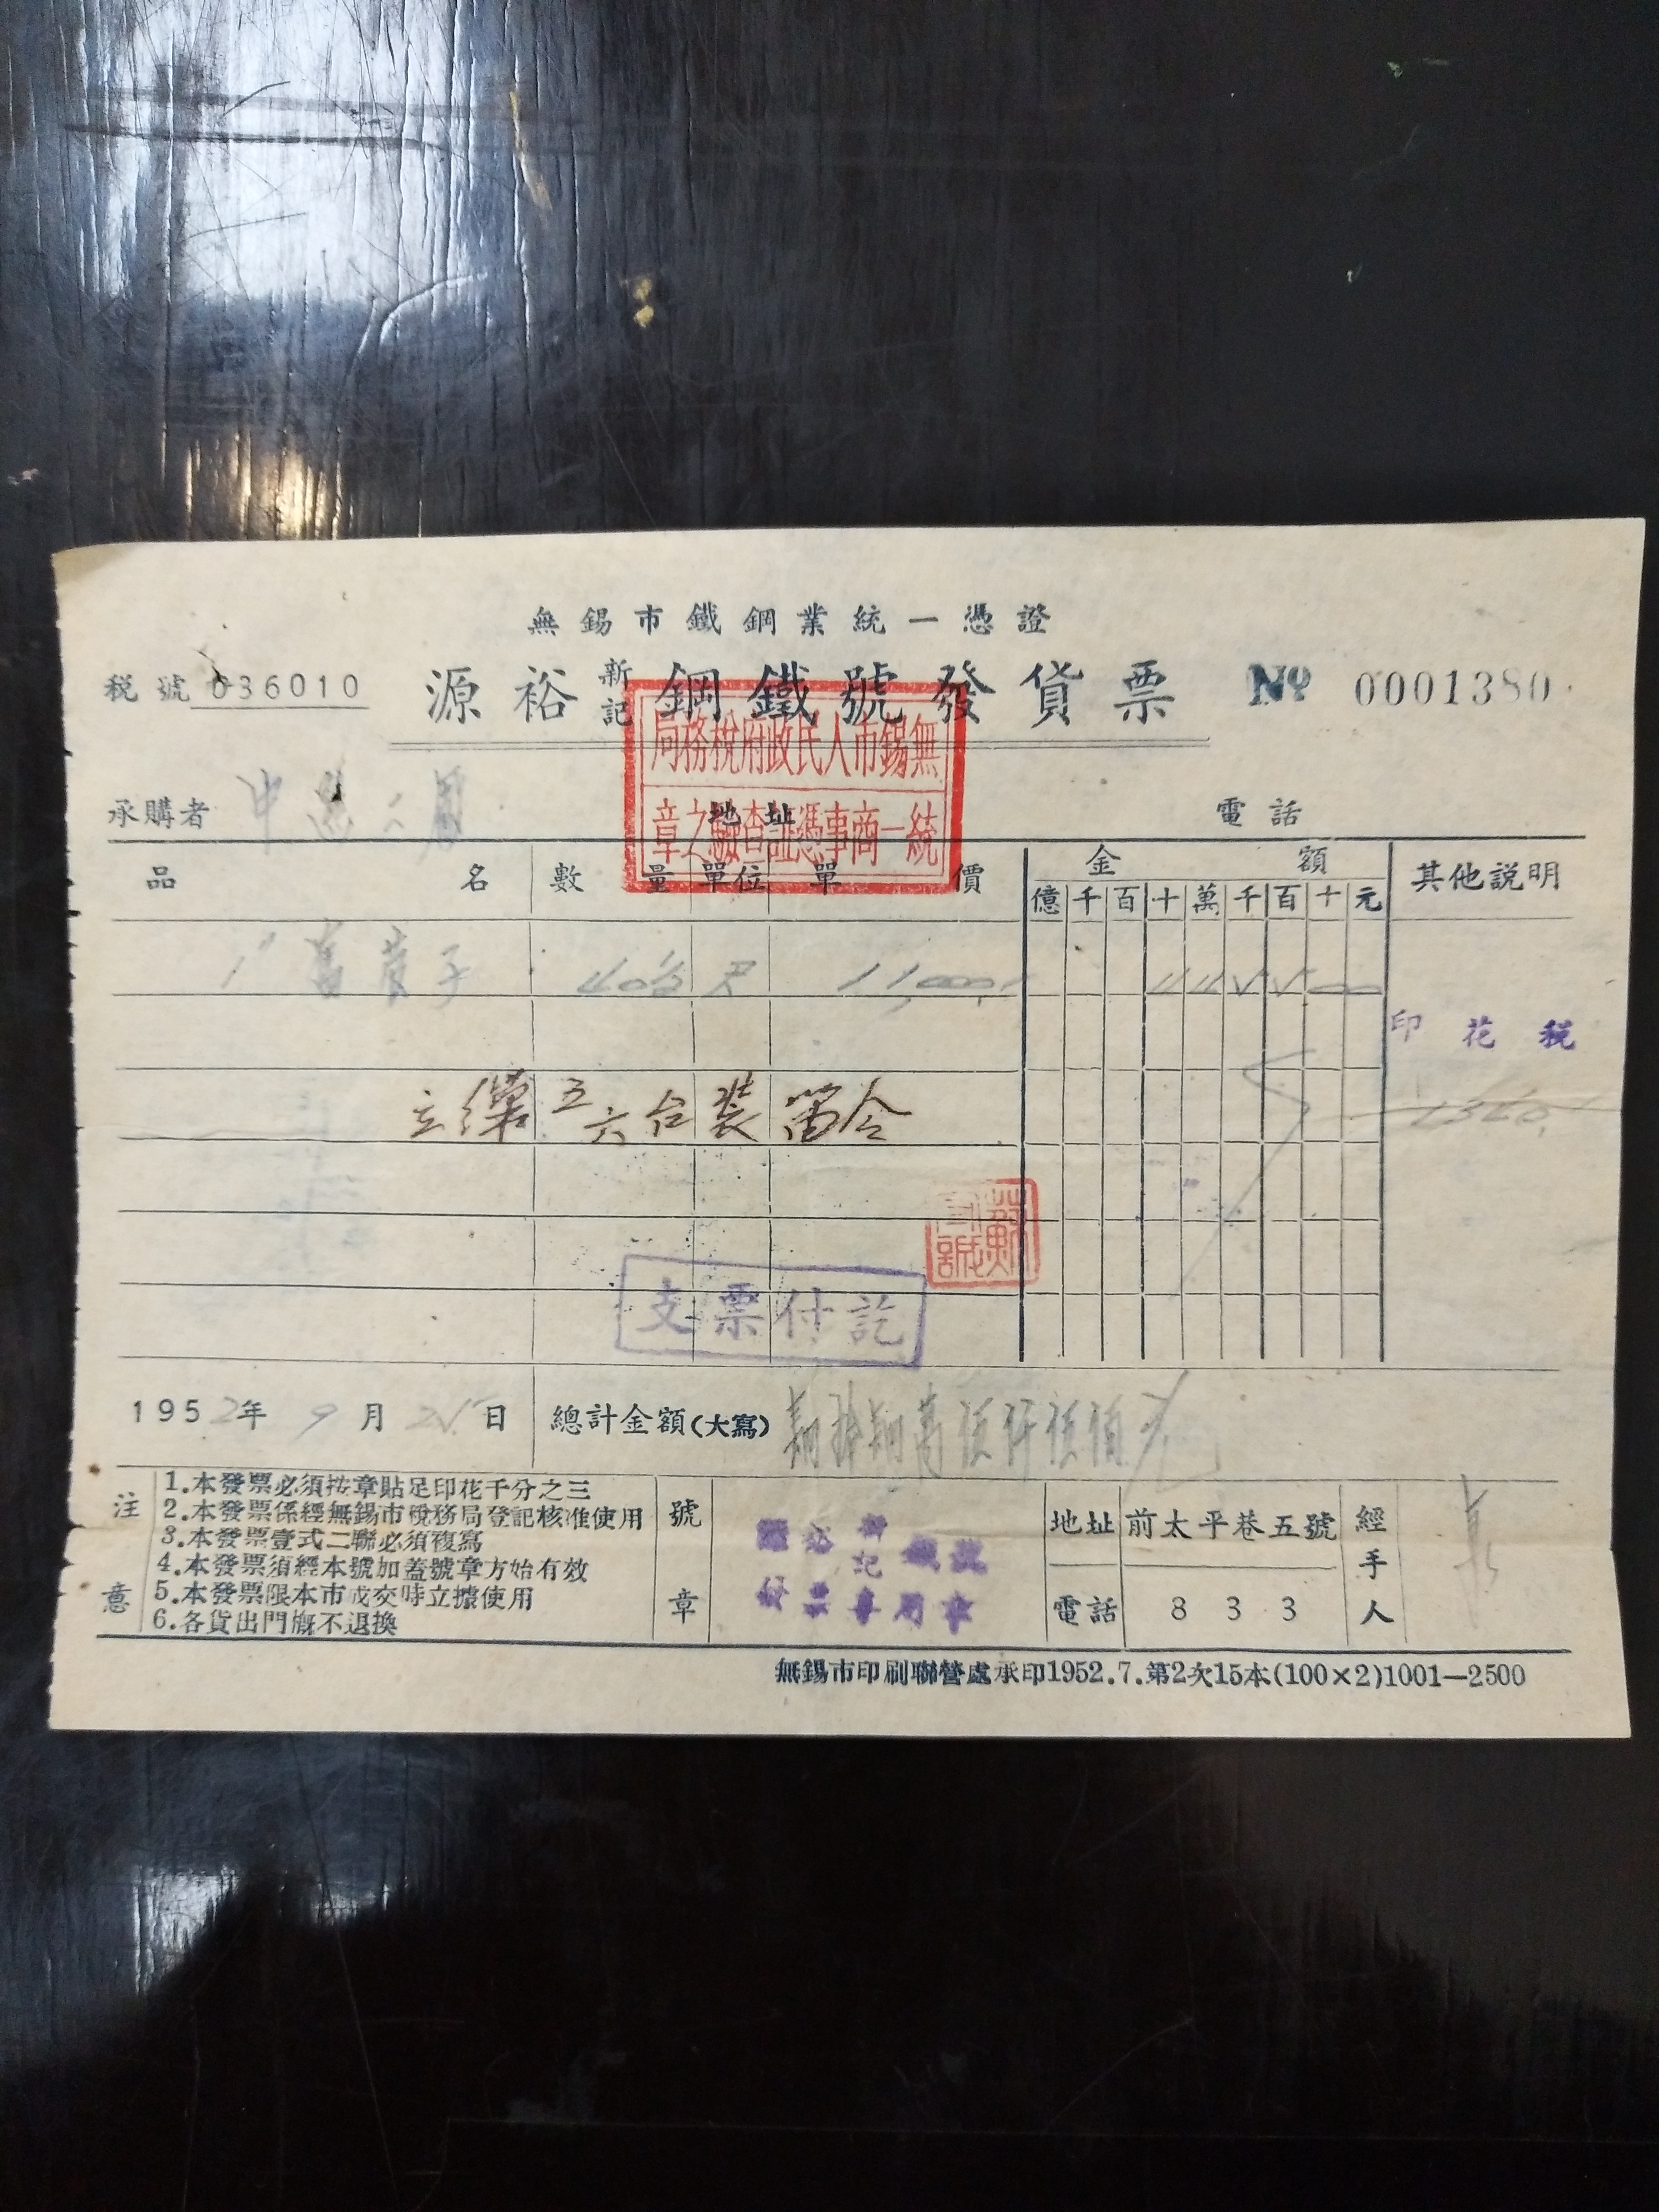 無錫市鐵鋼業統一憑證
稅號 036010 源裕新記鋼鐵號發貨票 № 0001380
無錫市人民政府稅務局
統一商事憑証查驗之章
承購者 地址 電話
品名 數量 單位 單價 金額 其他説明
億 千 百 十 萬 千 百 十 元
子 40½ 尺 11,000
印花税
1340
五六台裝
支票付訖
1952年9月25日 總計金額(大寫)
注意
1.本發票必須按章貼足印花千分之三
2.本發票係經無錫市稅務局登記核准使用
3.本發票壹式二聯必須複寫
4.本發票須經本號加蓋號章方始有效
5.本發票限本市成交時立據使用
6.各貨出門概不退換
號章
地址 前太平巷五號
電話 833
經手人
無錫市印刷聯營處承印1952.7.第2次15本(100×2)1001—2500